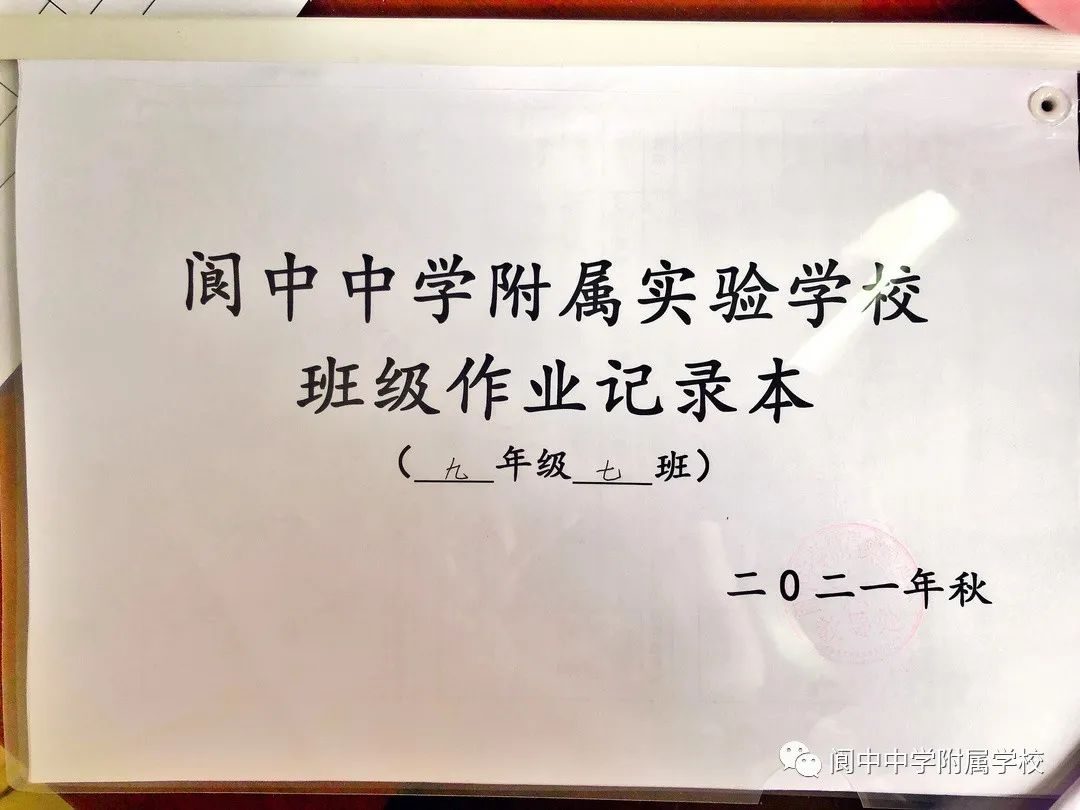 阆中中学附属实验学校
班级作业记录本
（九年级七班）
二0二一年秋
教导处
阆中中学附属学校